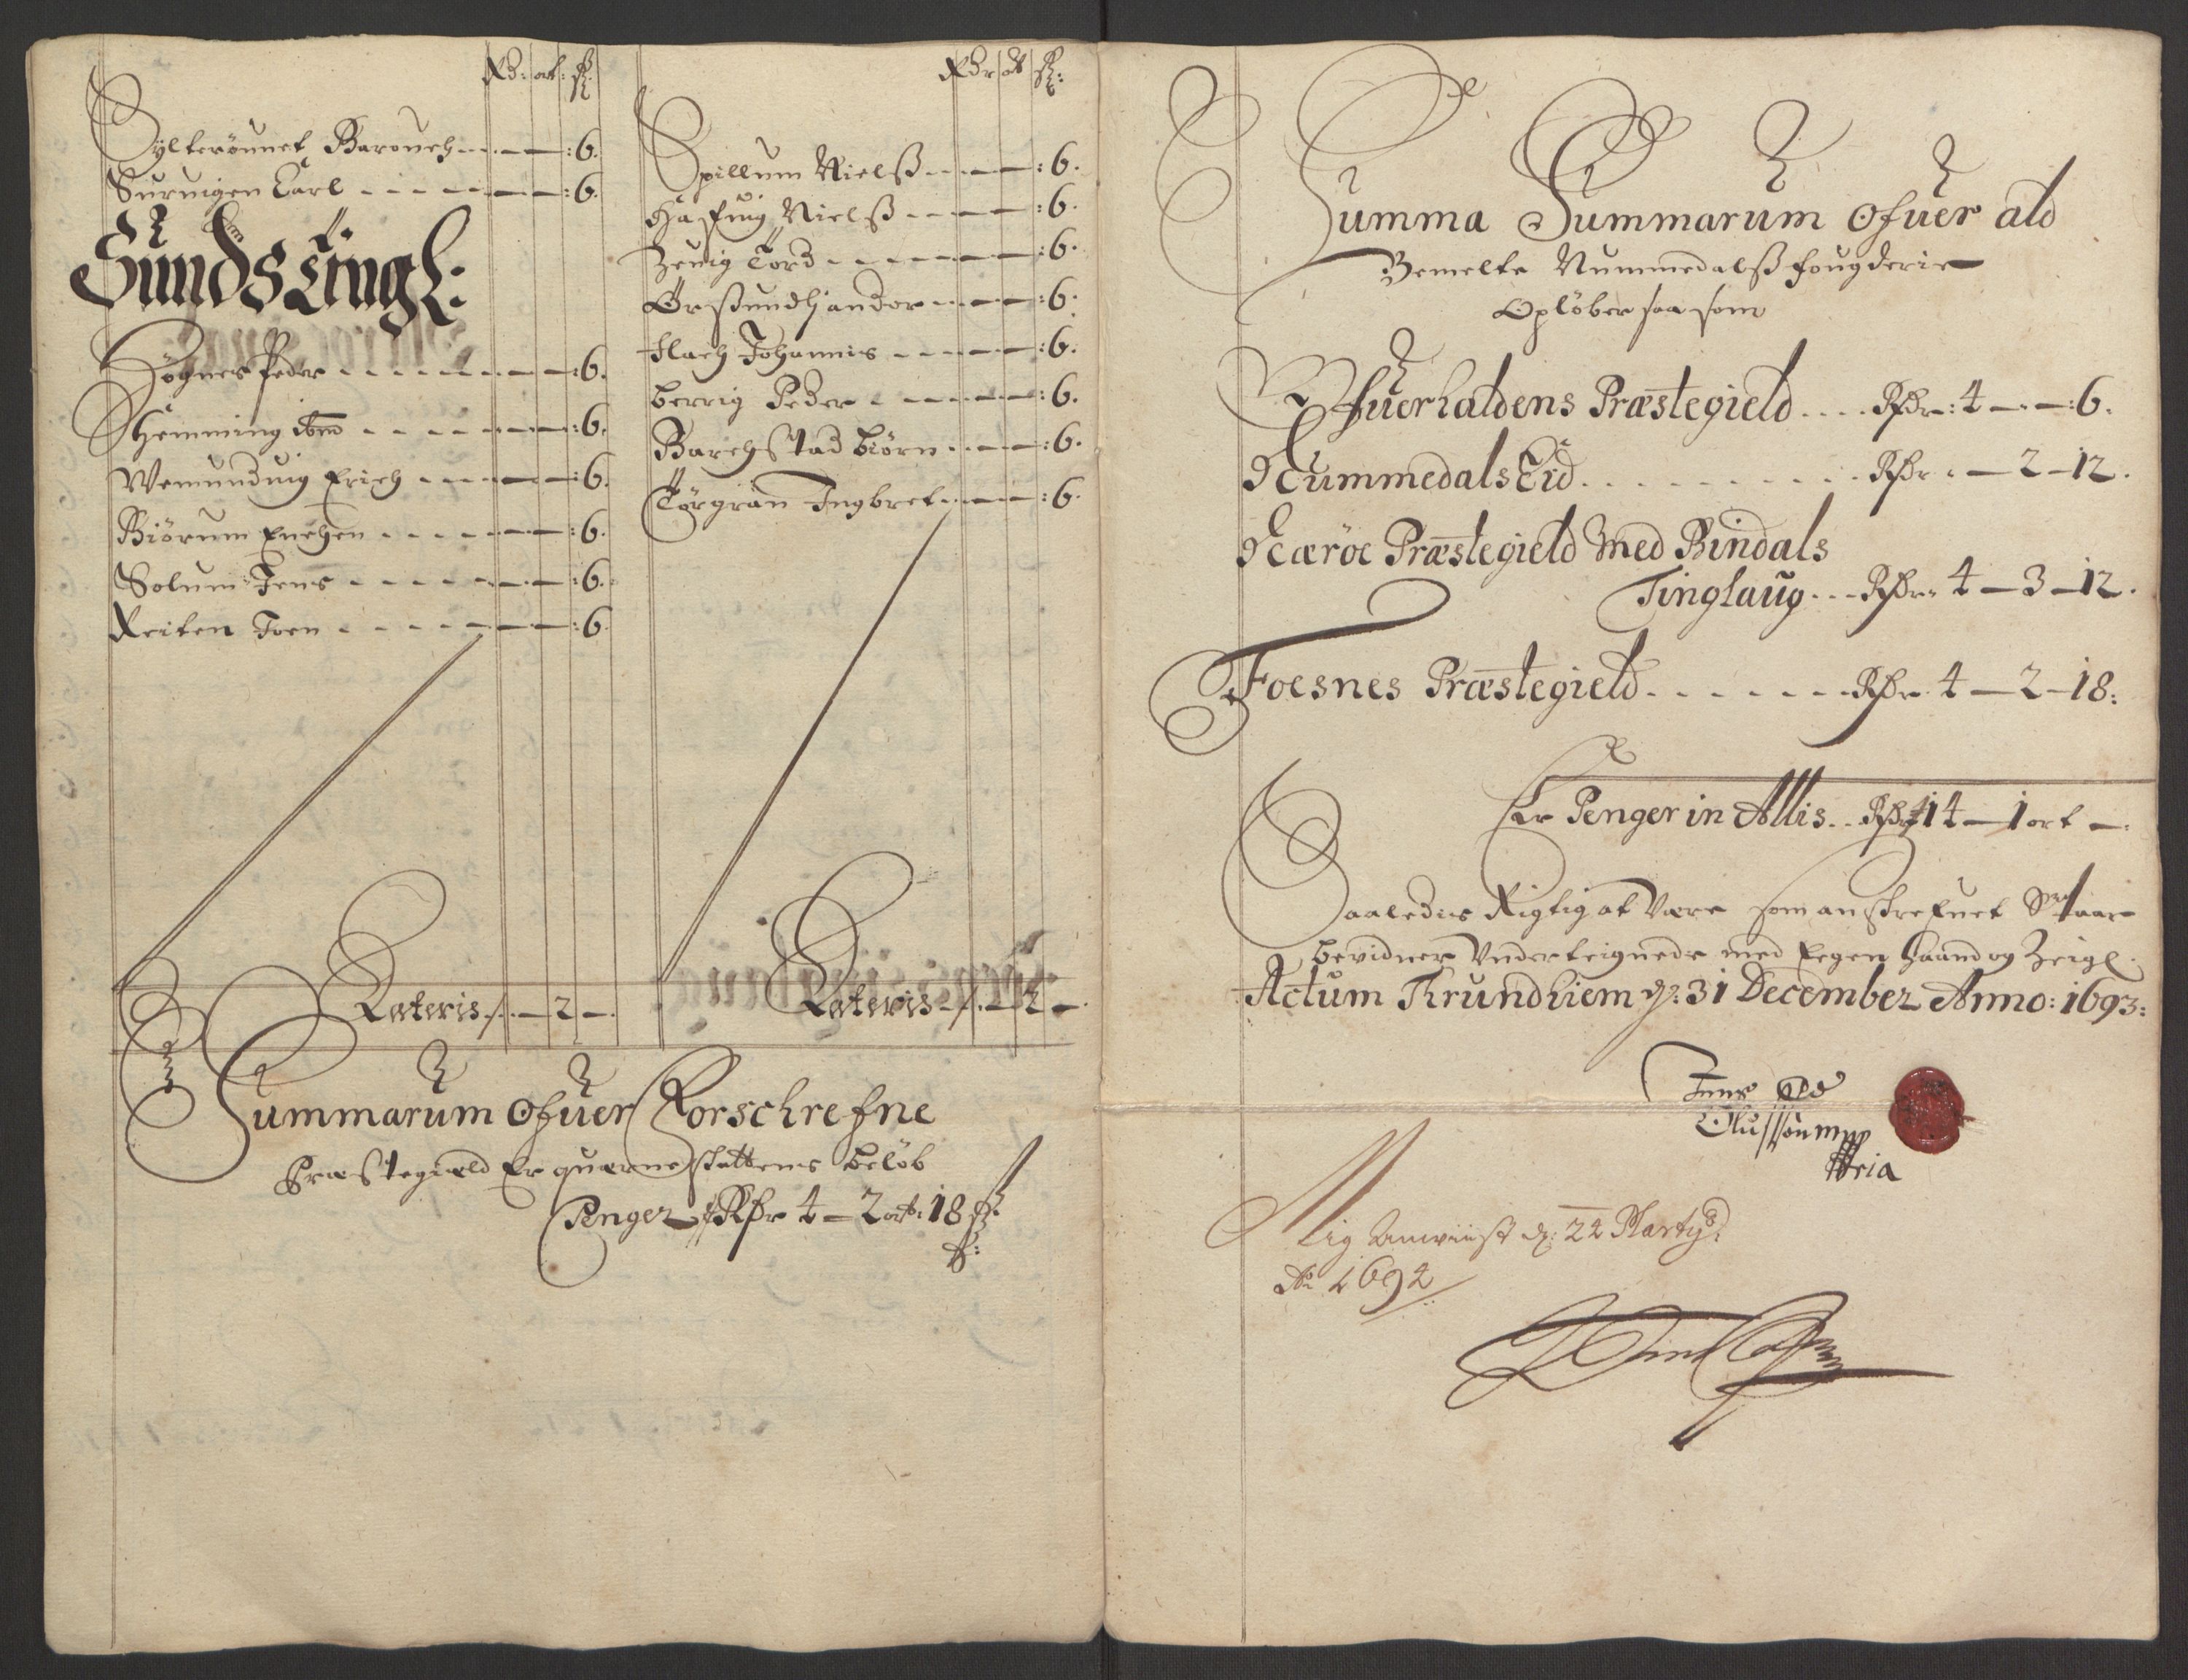 Rd: ort: ß
Sylterönnet Barouch - - - - : 6.
Suruigen Carl - - - - : 6.
Sunds Tingl:
Högnes Peder - - - - : 6.
Hemming ibm - - - - : 6.
Wemunduig Erich - - - - : 6.
Biörum Enchen - - - - : 6.
Solum Jens - - - - : 6.
Reiten Joen - - - - : 6.
Lateris - / - 2 -
Rdr ort ß:
Spillum Nielß - - - - : 6.
Hasfuig Nielß - - - - : 6.
Zeuig Tord - - - - : 6.
Örßundh andor - - - - : 6.
Flach Johannis - - - - : 6.
berrig Peder - - - - : 6.
Barchstad biörn - - - - : 6.
Törgran Ingbret - - - - : 6.
Lateris - / - 2 -
Summarum ofuer Forschrefne
Præstegield Er querneskattens beløb
Penger Rdr 4 - 2 ort: 18 ß:
Summa Summarum ofuer ald
Bemelte Nummedalß fougderie
Opløber saa som
Ofuerhaldens Præstegield . . . . Rdr: 4 - - : 6.
Nummedals Eid . . . . . . . . Rdr: - 2 - 12.
Næröe Præstegield Med Bindals
Tinglaug . . . Rdr: 4 - 3 - 12.
Foesnes Præstegield . . . . . . . Rdr 4 - 2 - 18:
Er Penger in Allis . . Rdr 14 - 1 ort -
Saaledis Rigtig at Være som anschrefuet Staar
bevidner Underteignede med Eegen haand og Zeigl.
Actum Trundhiem d: 31 December Anno: 1693:
Jens
Olufssön mp
pria
Mig Anwiist d: 24 Marty
Ao 1694